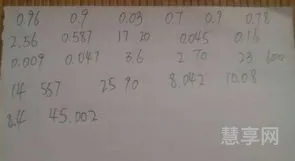 0.96 0.9 0.03 0.7 0.9 0.78
2.56 0.587 17 20 0.045 0.16
0.009 0.047 3.6 2 70 23 600
14 557 25 90 8.042 10.08
8.4 45.002
慧享网